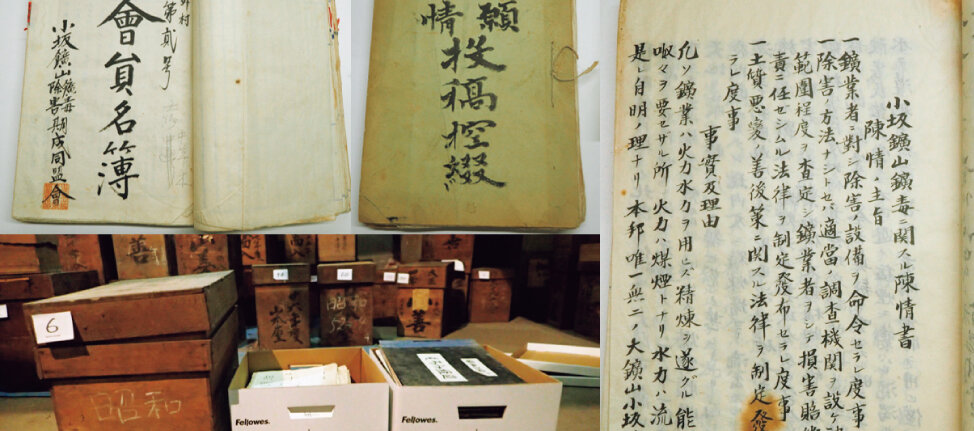 野村
第貳号
會員名簿
小坂鑛山鑛毒除害期成同盟會
願
情
投稿控綴
小坂鑛山鑛毒ニ関スル陳情書
陳情ノ主旨
一鑛業者ニ対シ除害ノ設備ヲ命令セラレ度事
一除害ノ方法ナシトセバ適當ノ調査機関ヲ設ケ
範圍程度ヲ査定シ鑛業者ヲシテ損害賠
責ニ任セシムル法律ヲ制定發布セラレ度事
一土質悪変ノ善後策ニ関スル法律ヲ制定發
ラレ度事
事實及理由
凡ソ鑛業ハ火力水力ヲ用ヒズ精煉ヲ遂グル能
ヲ要セザル所火力ハ煤煙トナリ水力ハ流
是レ自明ノ理ナリ本邦唯一無二ノ大鑛山小坂
6
昭和
善
昭和
善
Fellowes.
Fellowes.